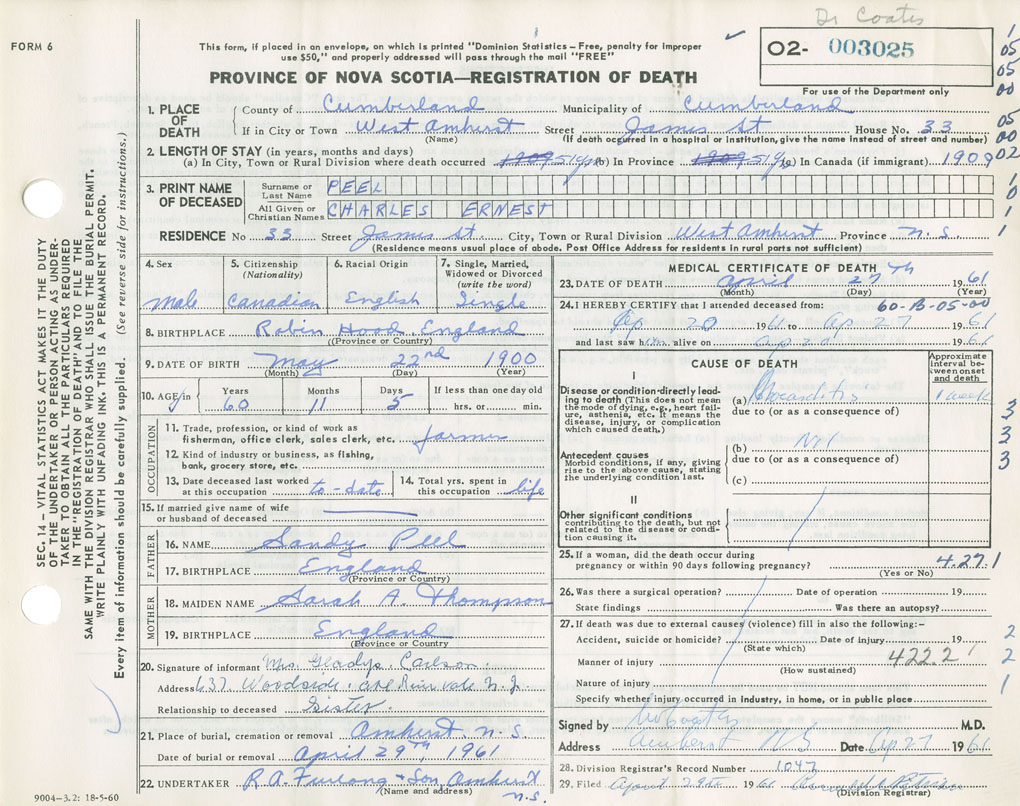 Dr Coates
FORM 6
This form, if placed in an envelope, on which is printed "Dominion Statistics – Free, penalty for improper
use $50," and properly addressed will pass through the mail "FREE"
O2- 003025
For use of the Department only
PROVINCE OF NOVA SCOTIA—REGISTRATION OF DEATH
1. PLACE OF DEATH
County of Cumberland Municipality of Cumberland
If in City or Town West Amherst Street James St House No. 33
(Name) (If death occurred in a hospital or institution, give the name instead of street and number)
2. LENGTH OF STAY (in years, months and days)
(a) In City, Town or Rural Division where death occurred 1909 51 yrs (b) In Province 1909 51 yrs (c) In Canada (if immigrant) 1909
3. PRINT NAME OF DECEASED
Surname or Last Name PEEL
All Given or Christian Names CHARLES ERNEST
RESIDENCE No 33 Street James St. City, Town or Rural Division West Amherst Province N.S.
(Residence means usual place of abode. Post Office Address for residents in rural parts not sufficient)
4. Sex Male
5. Citizenship (Nationality) Canadian
6. Racial Origin English
7. Single, Married, Widowed or Divorced (write the word) Single
8. BIRTHPLACE Robin Hood, England
(Province or Country)
9. DATE OF BIRTH May 22nd 1900
(Month) (Day) (Year)
10. AGE in Years 60 Months 11 Days 5 If less than one day old hrs. or min.
OCCUPATION
11. Trade, profession, or kind of work as
fisherman, office clerk, sales clerk, etc. farmer
12. Kind of industry or business, as fishing,
bank, grocery store, etc.
13. Date deceased last worked at this occupation to-date
14. Total yrs. spent in this occupation life
15. If married give name of wife
or husband of deceased
FATHER
16. NAME Sandy Peel
17. BIRTHPLACE England
(Province or Country)
MOTHER
18. MAIDEN NAME Sarah A. Thompson
19. BIRTHPLACE England
(Province or Country)
20. Signature of informant Mrs. Gladys Carlson.
Address 637 Woodside N.J.
Relationship to deceased Sister.
21. Place of burial, cremation or removal Amherst N.S.
Date of burial or removal April 29th, 1961
22. UNDERTAKER R.A. Furlong & Son, Amherst N.S.
(Name and address)
9004–3.2: 18-5-60
MEDICAL CERTIFICATE OF DEATH
23. DATE OF DEATH April 27th 1961
(Month) (Day) (Year)
60-B-05-00
24. I HEREBY CERTIFY that I attended deceased from:
Ap 20 1961 to Ap 27 1961
and last saw him alive on 1961
CAUSE OF DEATH
Approximate interval between onset and death
I
Disease or condition directly leading to death (This does not mean the mode of dying, e.g., heart failure, asthenia, etc. It means the disease, injury, or complication which caused death.)
(a) Myocarditis 1 week
due to (or as a consequence of)
Antecedent causes
Morbid conditions, if any, giving rise to the above cause, stating the underlying condition last.
(b)
due to (or as a consequence of)
(c)
II
Other significant conditions
contributing to the death, but not related to the disease or condition causing it.
25. If a woman, did the death occur during
pregnancy or within 90 days following pregnancy? 4.27.1
(Yes or No)
26. Was there a surgical operation? Date of operation 19
State findings Was there an autopsy?
27. If death was due to external causes (violence) fill in also the following:–
Accident, suicide or homicide? Date of injury 19
(State which)
Manner of injury 422.2
(How sustained)
Nature of injury
Specify whether injury occurred in industry, in home, or in public place
Signed by Coates M.D.
Address Amherst NS Date Ap 27 1961
28. Division Registrar's Record Number 1047
29. Filed April 29th 1961
(Division Registrar)
SEC. 14 – VITAL STATISTICS ACT MAKES IT THE DUTY
OF THE UNDERTAKER OR PERSON ACTING AS UNDER-
TAKER TO OBTAIN ALL THE PARTICULARS REQUIRED
IN THE "REGISTRATION OF DEATH" AND TO FILE THE
SAME WITH THE DIVISION REGISTRAR WHO SHALL ISSUE THE BURIAL PERMIT.
WRITE PLAINLY WITH UNFADING INK. THIS IS A PERMANENT RECORD.
Every item of information should be carefully supplied. (See reverse side for instructions.)
1
05
05
00
05
00
02
1
0
1
1
3
3
3
3
2
2
1